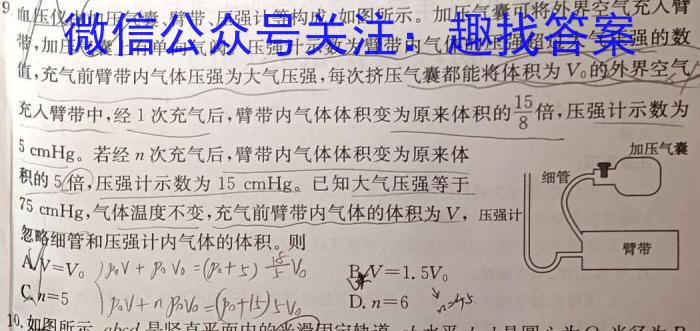 9.血压仪由加压气囊、臂带、压强计等构成,如图所示。加压气囊可将外界空气充入臂
微信公众号关注:趣找答案
值,充气前臂带内气体压强为大气压强,每次挤压气囊都能将体积为V₀的外界空气
充入臂带中,经1次充气后,臂带内气体体积变为原来体积的15/8倍,压强计示数为
5 cmHg。若经n次充气后,臂带内气体体积变为原来体
积的5倍,压强计示数为15 cmHg。已知大气压强等于
75 cmHg,气体温度不变,充气前臂带内气体的体积为V,
忽略细管和压强计内气体的体积。则
加压气囊
细管
压强计
臂带
A.V=V₀
p₀V+p₀V₀=(p₀+5)
B.V=1.5V₀
C.n=5
p₀V+np₀V₀=(p₀+15)5V₀
D.n=6
10.如图所示,abcd是竖直平面内的光滑固定轨道